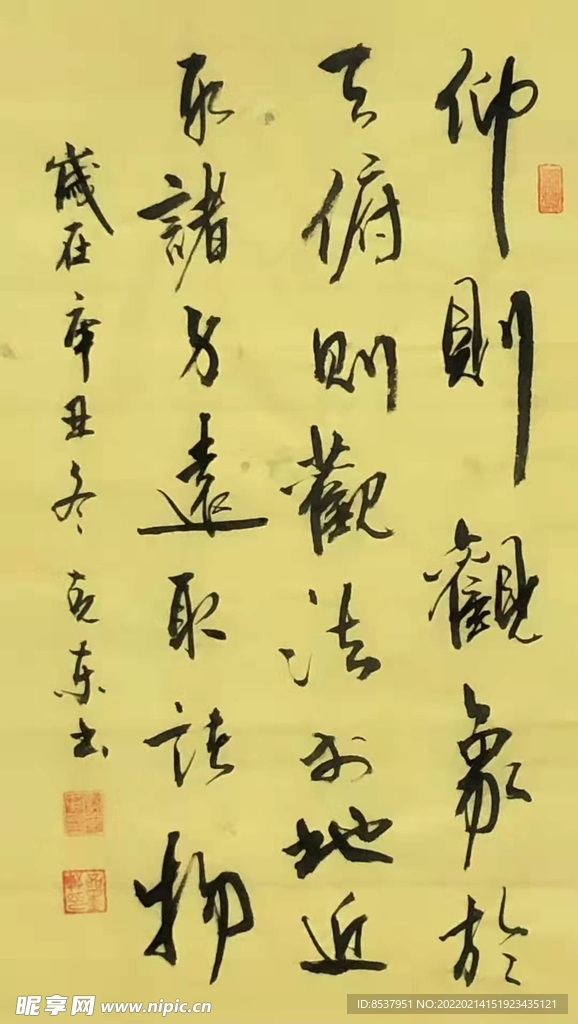 仰則觀象於
天俯則觀法於地近
取諸身遠取諸物
歲在辛丑冬克东书
昵享网 www.nipic.cn
ID:8537951 NO:20220214151923435121